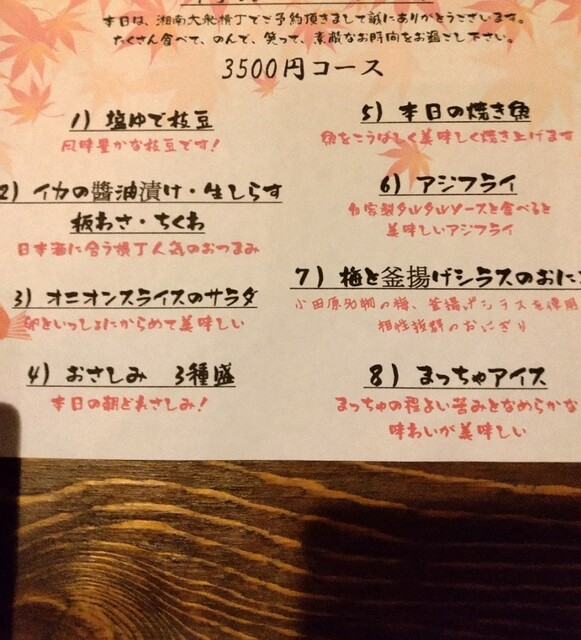 本日は、湘南大衆横丁でご予約頂きまして誠にありがとうございます。
たくさん食べて、のんで、笑って、素敵なお時間をお過ごし下さい。
3500円コース
1) 塩ゆで枝豆
風味豊かな枝豆です!
2) イカの醬油漬け・生しらす
板わさ・ちくわ
日本酒に合う横丁人気のおつまみ
3) オニオンスライスのサラダ
卵といっしょにからめて美味しい
4) おさしみ 3種盛
本日の朝どれさしみ!
5) 本日の焼き魚
魚をこうばしく美味しく焼き上げます
6) アジフライ
自家製タルタルソースと食べると
美味しいアジフライ
7) 梅と釜揚げシラスのおに
小田原名物の梅、釜揚げシラスを使用
相性抜群のおにぎり
8) まっちゃアイス
まっちゃの程よい苦みとなめらかな
味わいが美味しい